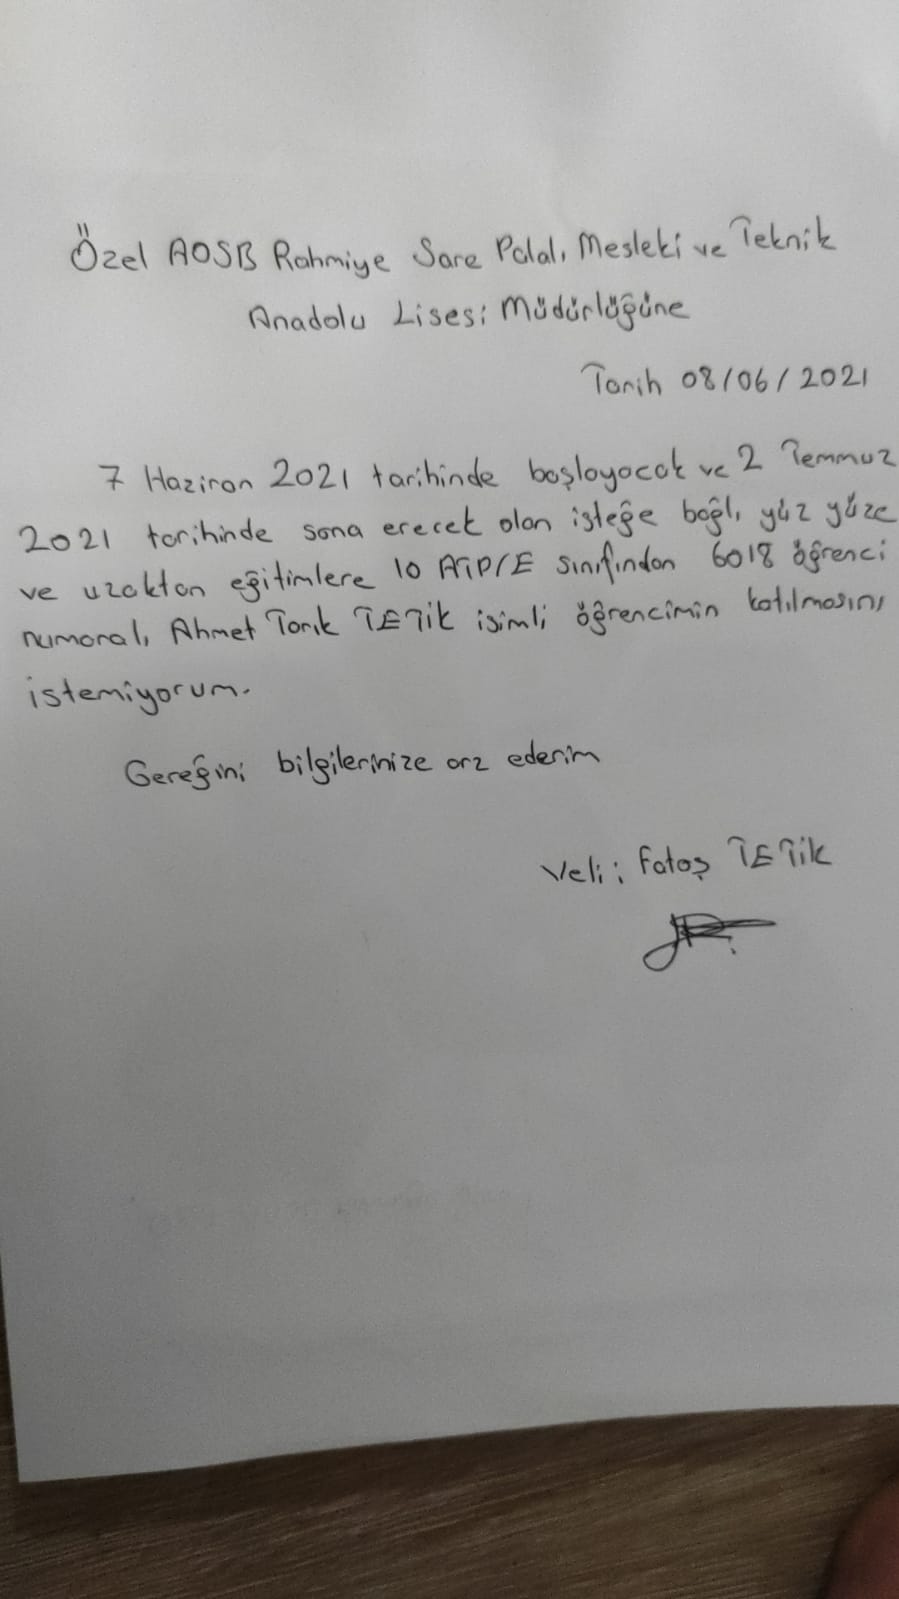 Özel AOSB Rahmiye Sare Palalı Mesleki ve Teknik
Anadolu Lisesi Müdürlüğüne
Tarih 08/06/2021
7 Haziran 2021 tarihinde başlayacak ve 2 Temmuz
2021 tarihinde sona erecek olan isteğe bağlı yüz yüze
ve uzaktan eğitimlere 10 ATP/E sınıfından 6018 öğrenci
numaralı Ahmet Tarık TETİK isimli öğrencimin katılmasını
istemiyorum.
Gereğini bilgilerinize arz ederim
Veli: Fatoş TETİK